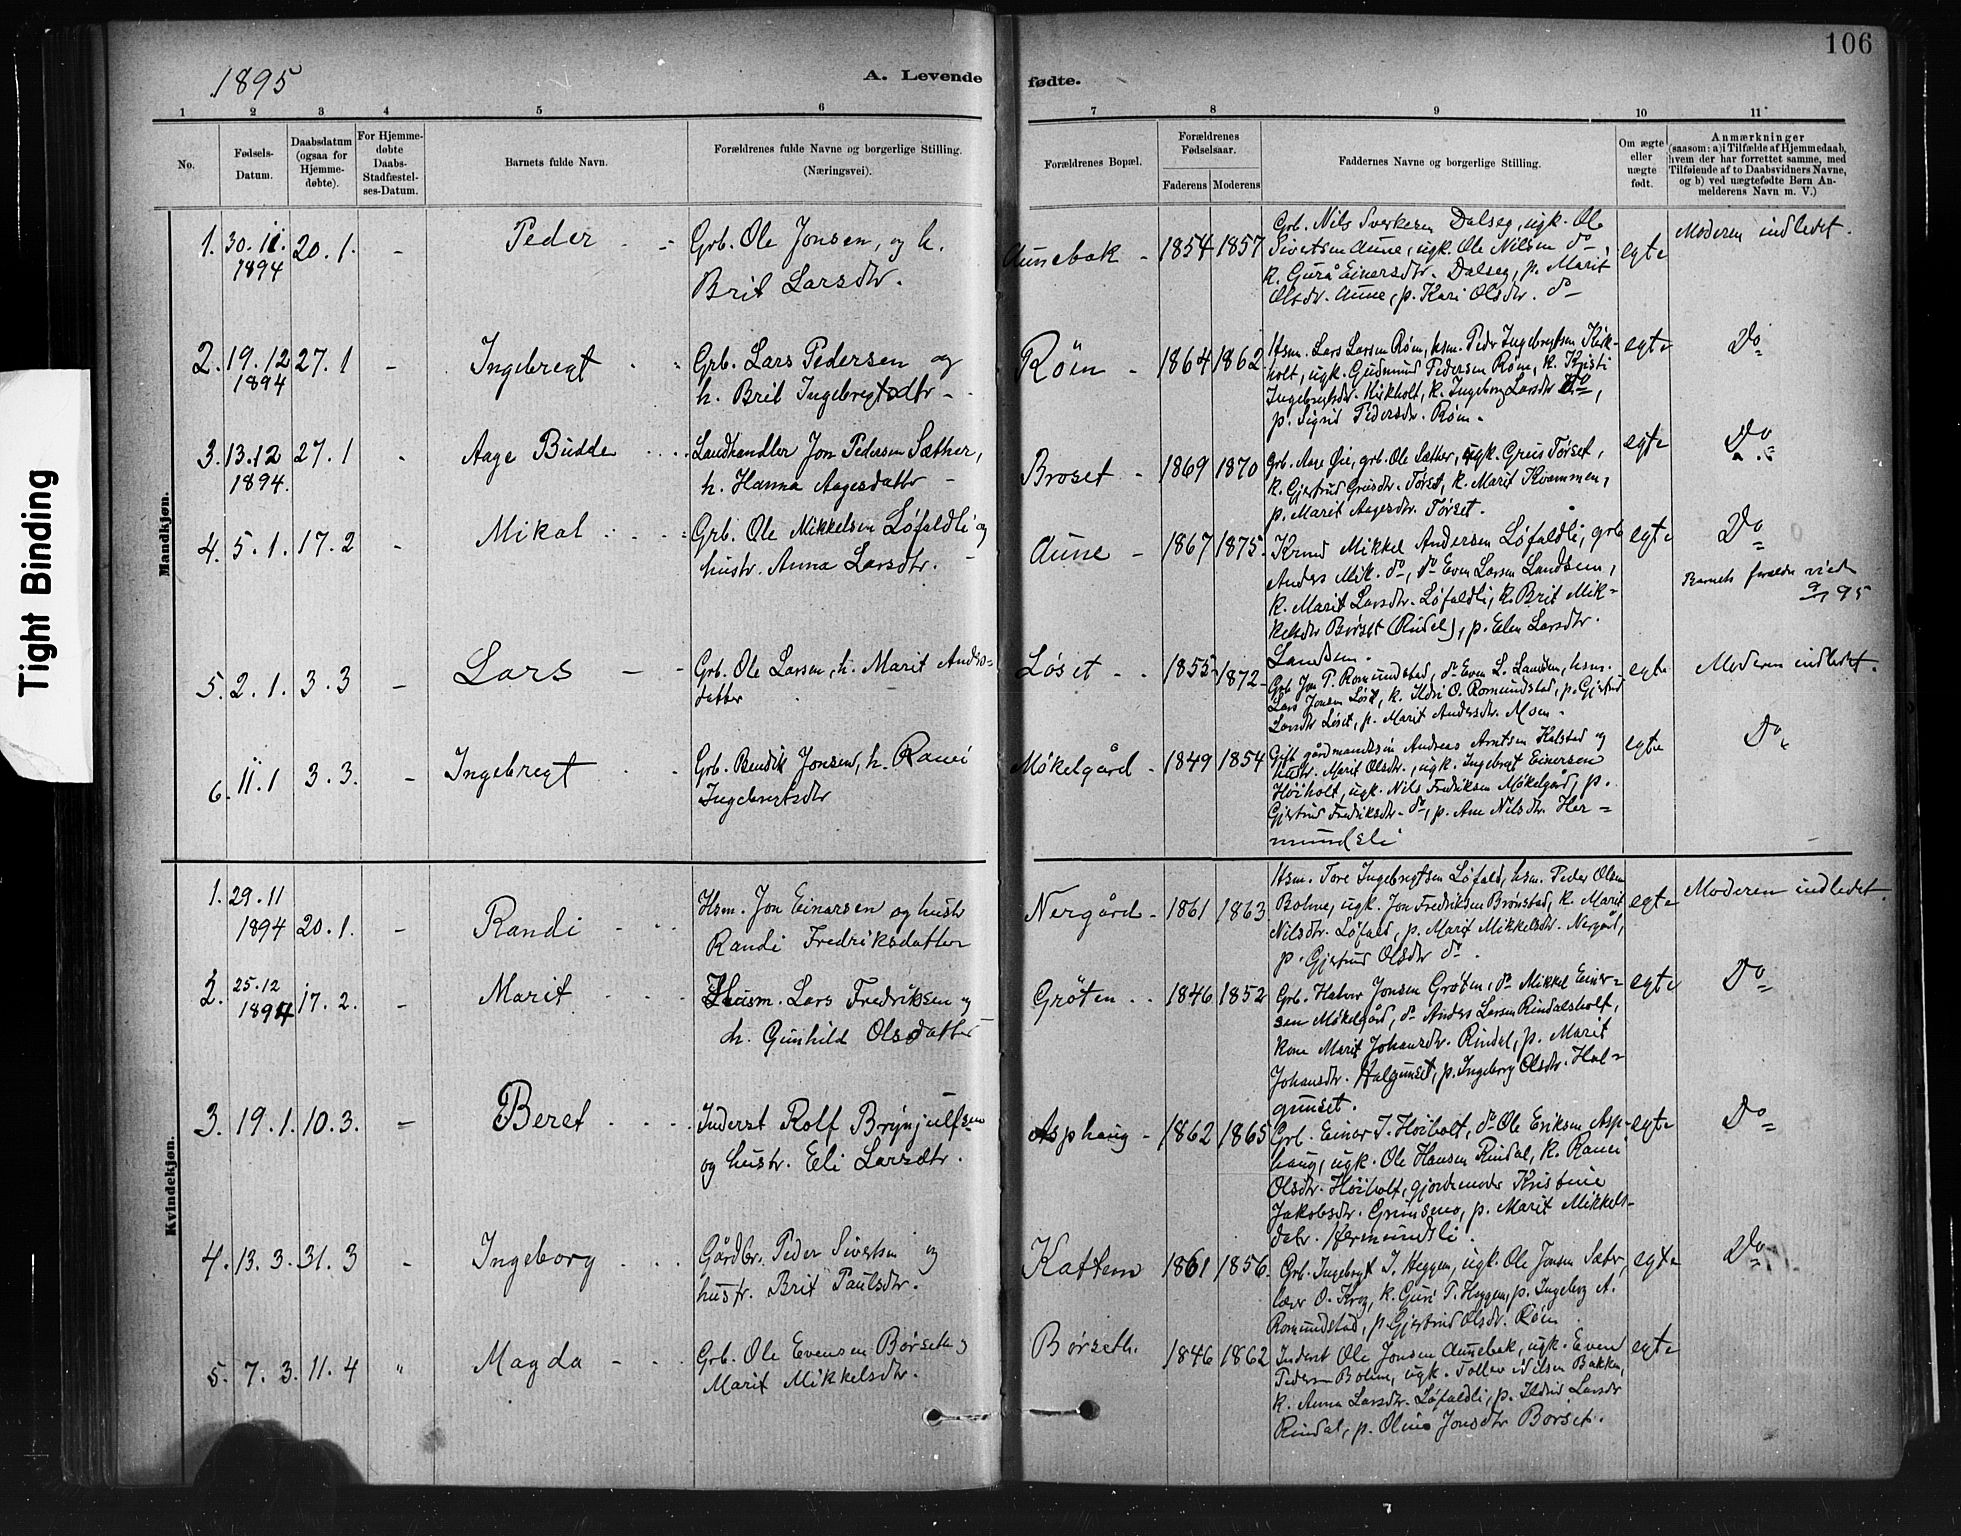 106
1895
A. Levende fødte.
1 2 3 4 5 6 7 8 9 10 11
No.
Fødsels-
Datum.
Daabsdatum
(ogsaa for
Hjemme-
døbte).
For Hjemme-
døbte
Daabs-
Stadfæstel-
ses-Datum.
Barnets fulde Navn.
Forældrenes fulde Navne og borgerlige Stilling.
(Næringsvei).
Forældrenes Bopæl.
Forældrenes
Fødselsaar.
Faderens Moderens
Faddernes Navne og borgerlige Stilling.
Om ægte
eller
uægte
født.
Anmærkninger
(saasom: a) i Tilfælde af Hjemmedaab,
hvem der har forrettet samme, med
Tilføiende af to Daabsvidners Navne,
og b) ved uægtefødte Børn An-
melderens Navn m. V.)
Tight Binding
Mandkjøn.
1. 30.11. 20.1. - Peder - - Grb. Ole Jonsen, og h.
1894
Brit Larsdtr.
Aunebak - 1854 1857 egte Moderen indledet.
Grb. Nils Sverkesen Dalseg, ugk. Ole
Sivertsen Aune, ugk. Ole Nilsen do,
k. Gurå Einersdtr. Dalseg, p. Marit
Olsdtr. Aune, p. Kari Olsdtr. do
2. 19.12 27.1 - Ingebregt - - Grb. Lars Pedersen og
1894
h. Brit Ingebregtsdtr -
Röen - 1864 1862 egte Do
Hsm. Lars Larsen Røen, hsm. Peder Ingebregtsen Kirk-
holt, ugk. Gudmund Pedersen Røen, k. Kristi
Ingebregtsdtr. Kirkholt, k. Ingeborg Larsdtr do,
p. Sigrid Pedersdtr. Røen.
3. 13.12 27.1 - Aage Budde Landhandler Jon Pedersen Sæther,
1894.
h. Hanna Aagesdatter -
Broset - 1869 1870 egte Do
Grb. Aage Øie, grb. Ole Sæther, ugk. Greis Tørset,
k. Gjertrud Greisdtr. Tørset, k. Marit Kvammen,
p. Marit Aagesdtr. Tørset.
4. 5.1. 17.2 - Mikal Grb. Ole Mikkelsen Løfaldli og
hustr. Anna Larsdtr. -
Aune - 1867 1875. egte Do
Mikkel Andersen Løfaldli, grb
Anders Mik. do, do Even Larsen Landsem,
k. Marit Larsdtr. Løfaldli, k. Brit Mik-
kelsdtr Børset (Rindal), p. Elen Larsdtr.
Landsem.
Barnets forældre viede
9/1 95
5. 2.1. 3.3 - Lars - - Grb. Ole Larsen, h. Marit Anders-
datter
Løset - 1855 1872 egte Moderen indledet.
Grb Jon P. Romundstad, do Even L. Landsem, hsm.
Lars Jonsen Løset, k. Ildri O. Romundstad, p. Gjertrud
Larsdtr Løset, p. Marit Andersdtr. Moen -
6. 11.1 3.3. - Ingebregt - - Grb. Bendik Jonsen, h. Ranei
Ingebregtsdtr
Møkelgård - 1849 1854 egte Do
Gift gårdmandssøn Andreas Arntsen Halstad og
hustr. Marit Olsdtr., ugk. Ingebregt Einersen
Høiholt, ugk. Nils Fredriksen Møkelgård, p.
Gjertrud Fredriksdtr. do, p. Ane Nilsdtr. Her-
mundsli
Kvindekjøn.
1. 29.11 20.1. - Randi - - Hsm. Jon Einarsen og hustr
1894
Randi Fredriksdatter
Nergård - 1861 1863 egte Moderen indledet
Hsm. Tore Ingebregtsen Løfald, hsm. Peder Olsen
Bolme, ugk. Jon Fredriksen Brønstad, k. Marit
Nilsdtr. Løfald, p. Marit Mikkelsdtr. Nergård,
p. Gjertrud Olsdtr do.
2. 25.12 17.2. - Marit - - Husm. Lars Fredriksen og
1894
h. Gunhild Olsdatter
Grøten - 1846 1852 egte Do
Grb. Halvor Jonsen Grøten, do Mikkel Einer-
sen Møkelgård, do Anders Larsen Rindalsholt,
kone Marit Johansdtr. Rindal, p. Marit
Johansdtr. Halgunset, p. Ingeborg Olsdtr. Hal-
gunset.
3. 19.1. 10.3. - Beret - - Inderst Rolf Brynjulfsen
og hustr. Eli Larsdtr.
Asphaug - 1862 1865 egte Do
Grb. Einar I. Høiholt, do Ole Eriksen Asp-
haug, ugk. Ole Hansen Rindal, k. Ranei
Olsdtr. Høiholt, gjordemoder Kristine
Jakobsdtr. Grimsmo, p. Marit Mikkels-
datr. Hermundsli.
4. 13.3. 31.3 - Ingeborg - - Gårdbr. Peder Sivertsen og
hustr. Brit Paulsdtr.
Kattem 1861 1856. egte Do
Grb. Ingebregt I. Heggem, ugk. Ole Jonsen Sæter,
lærer O. Krog, k. Guri P. Heggem, p. Ingeborg A.
Romundstad, p. Gjertrud Olsdtr. Røen
5. 7.3. 11.4 " Magda - - Grb. Ole Evensen Børseth,
Marit Mikkelsdtr.
Børseth. 1846 1862 egte
Inderst Ole Jonsen Aunebak, ugk. Even
Pedersen Bolme, ugk. Tollev Nilsen Bakken,
k. Anna Larsdtr. Løfaldli, p. Ildrid Larsdtr
Rindal, p. Oline Jonsdtr Børset.